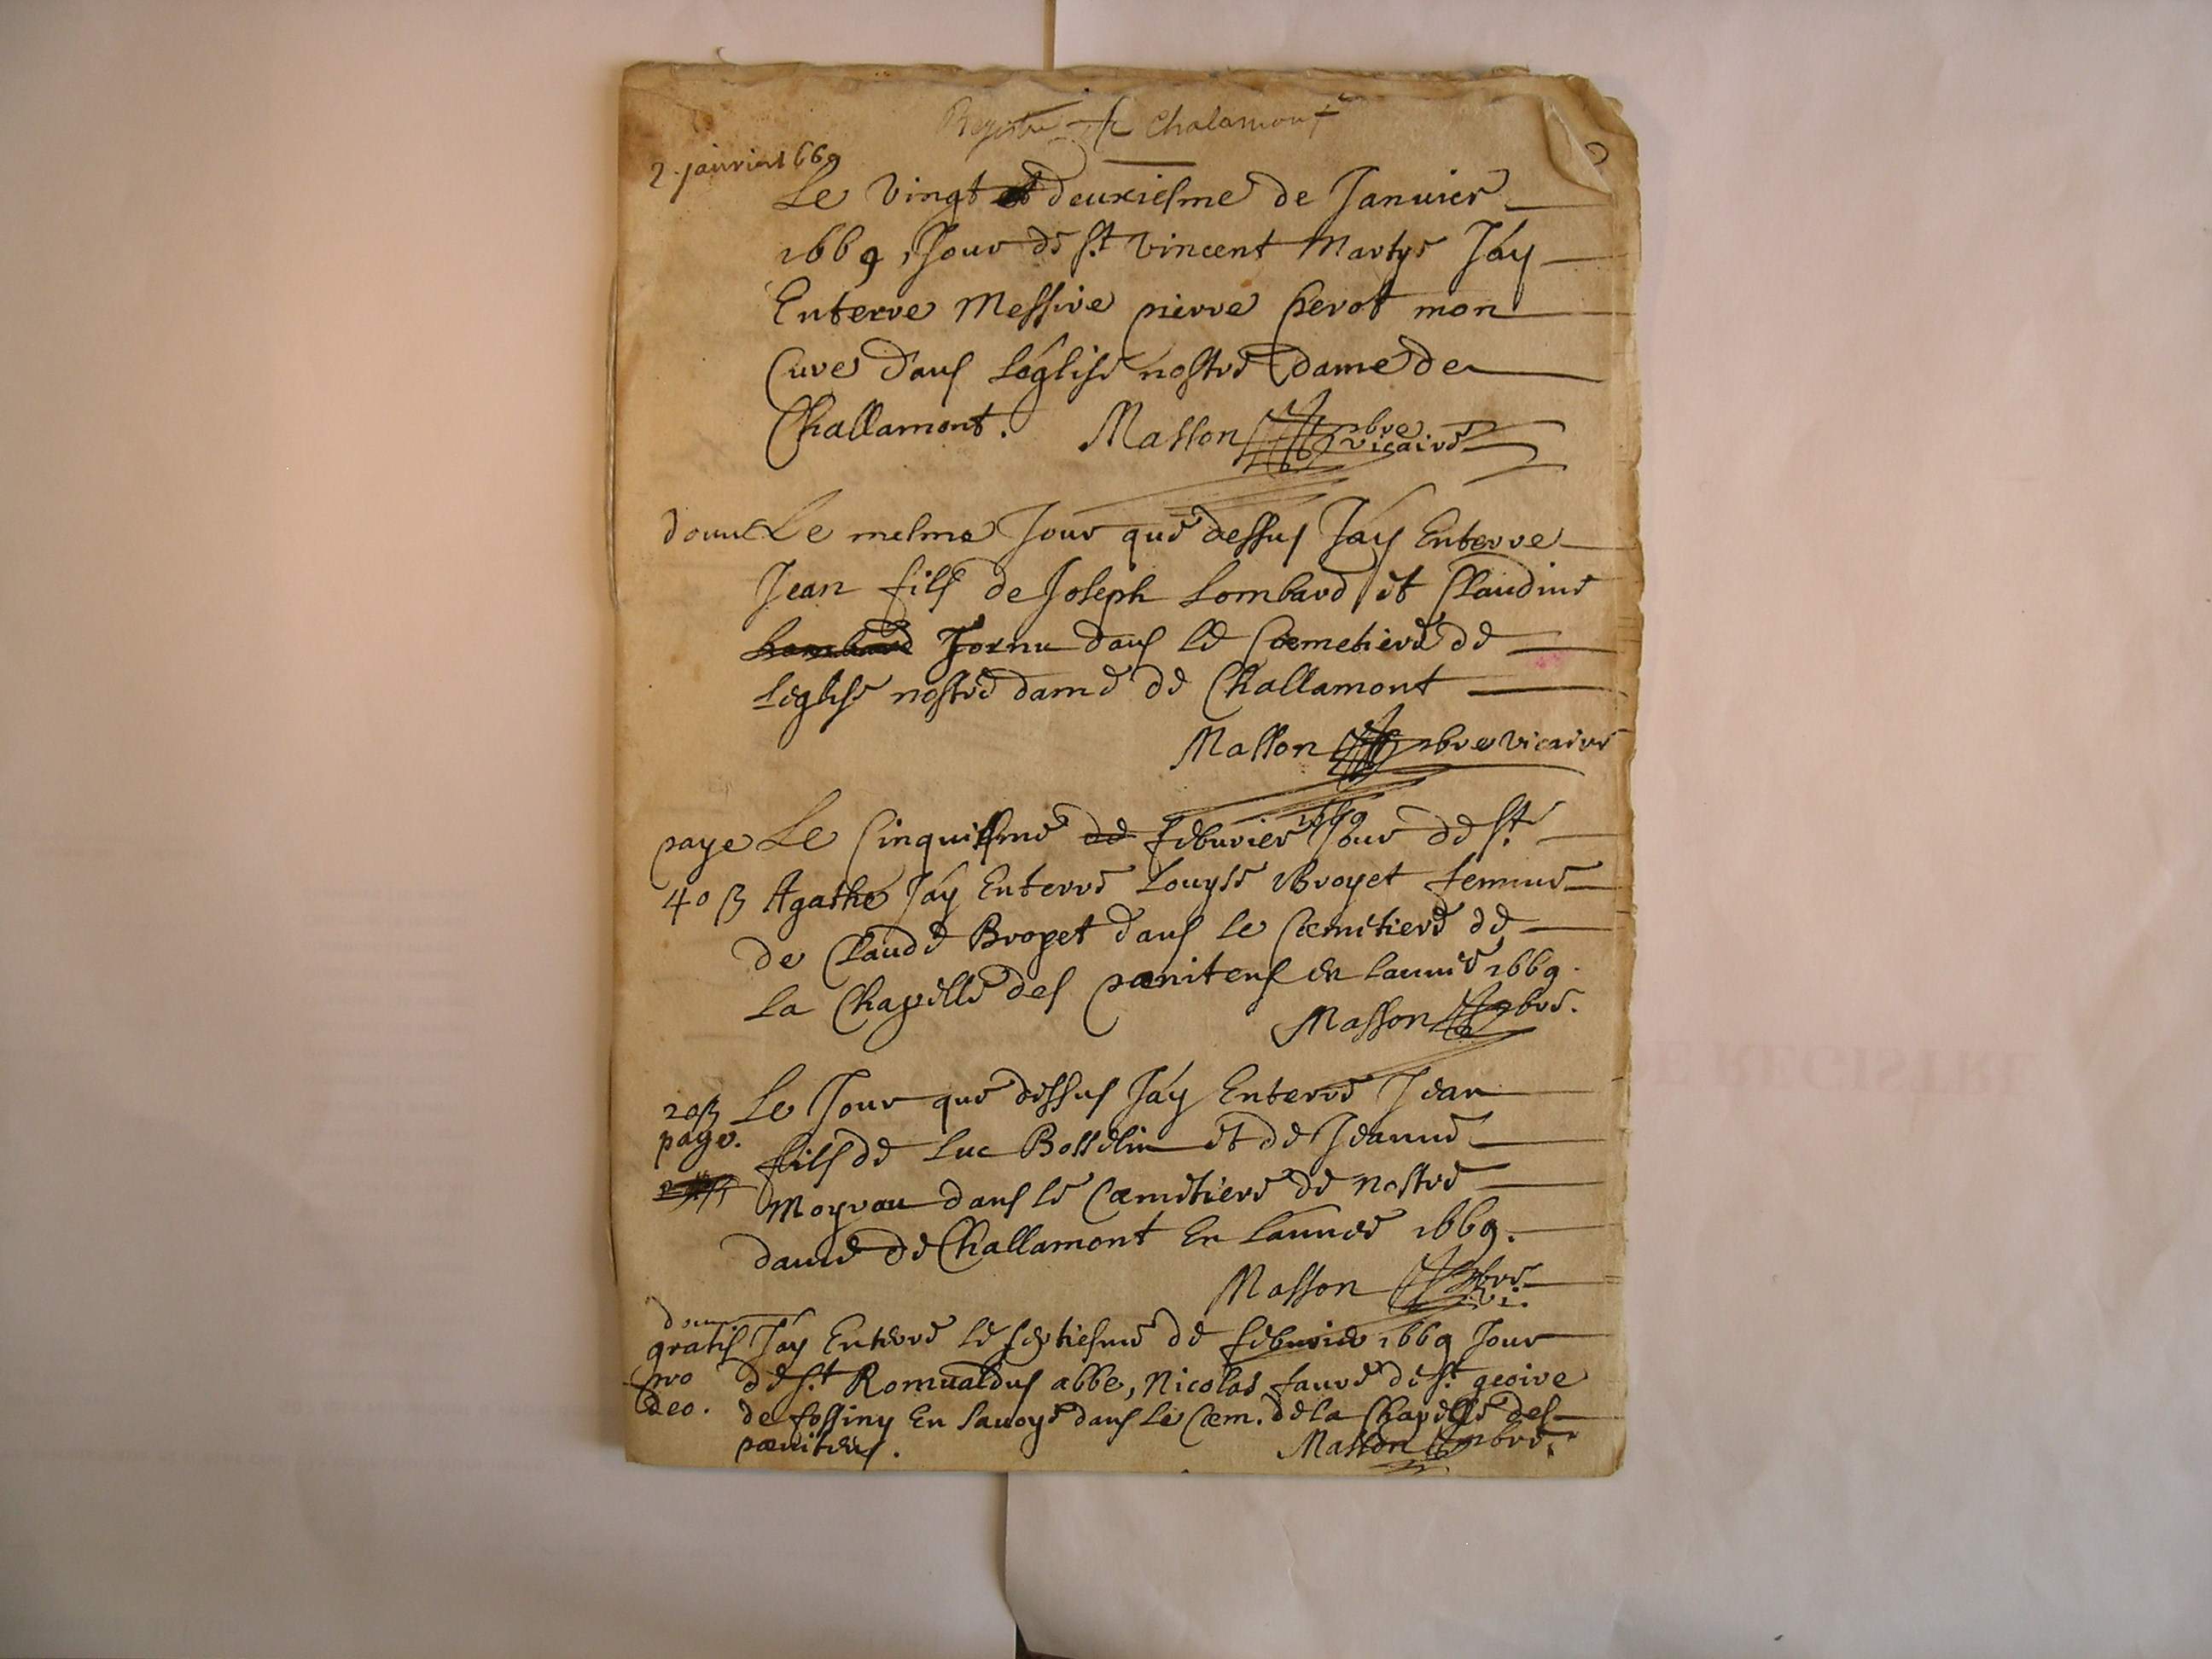 Registre de Chalamont
2. janvier 1669
Le vingt et deuxiesme de Januier
1669, Jour de St Vincent Martyr Jay
Enterre Messire pierre perot mon
Cure dans Leglise nostre dame de
Challamont. Masson pbre vicaire
donné Le mesme Jour que dessus Jay Enterre
Jean fils de Joseph Lombard et Claudine
Lombard Tornu dans le Coemetiere de
Leglise nostre dame de Challamont
Masson pbre vicaire
paye Le Cinquiesme de febuier 1669 Jour de Ste
40 ß Agathe Jay Enterré Louyse Broyet femme
de Claude Broyet dans le Coemetiere de
la Chapelle des poenitens en lannée 1669.
Masson pbre.
20 ß Le Jour que dessus Jay Enterré Jean
paye. fils de Luc Bosselin et de Jeanne
Moyrau dans le Coemetiere de nostre
dame de Challamont En Lannée 1669.
Masson pbre vi.
donné
gratis Jay Enterré le septiesme de febuier 1669 Jour
pro de St Romualdus abbé, Nicolas faure de St geoire
Deo. de fossiny En Sauoye dans le Coem. de la Chapelle des
poenitens. Masson pbre.